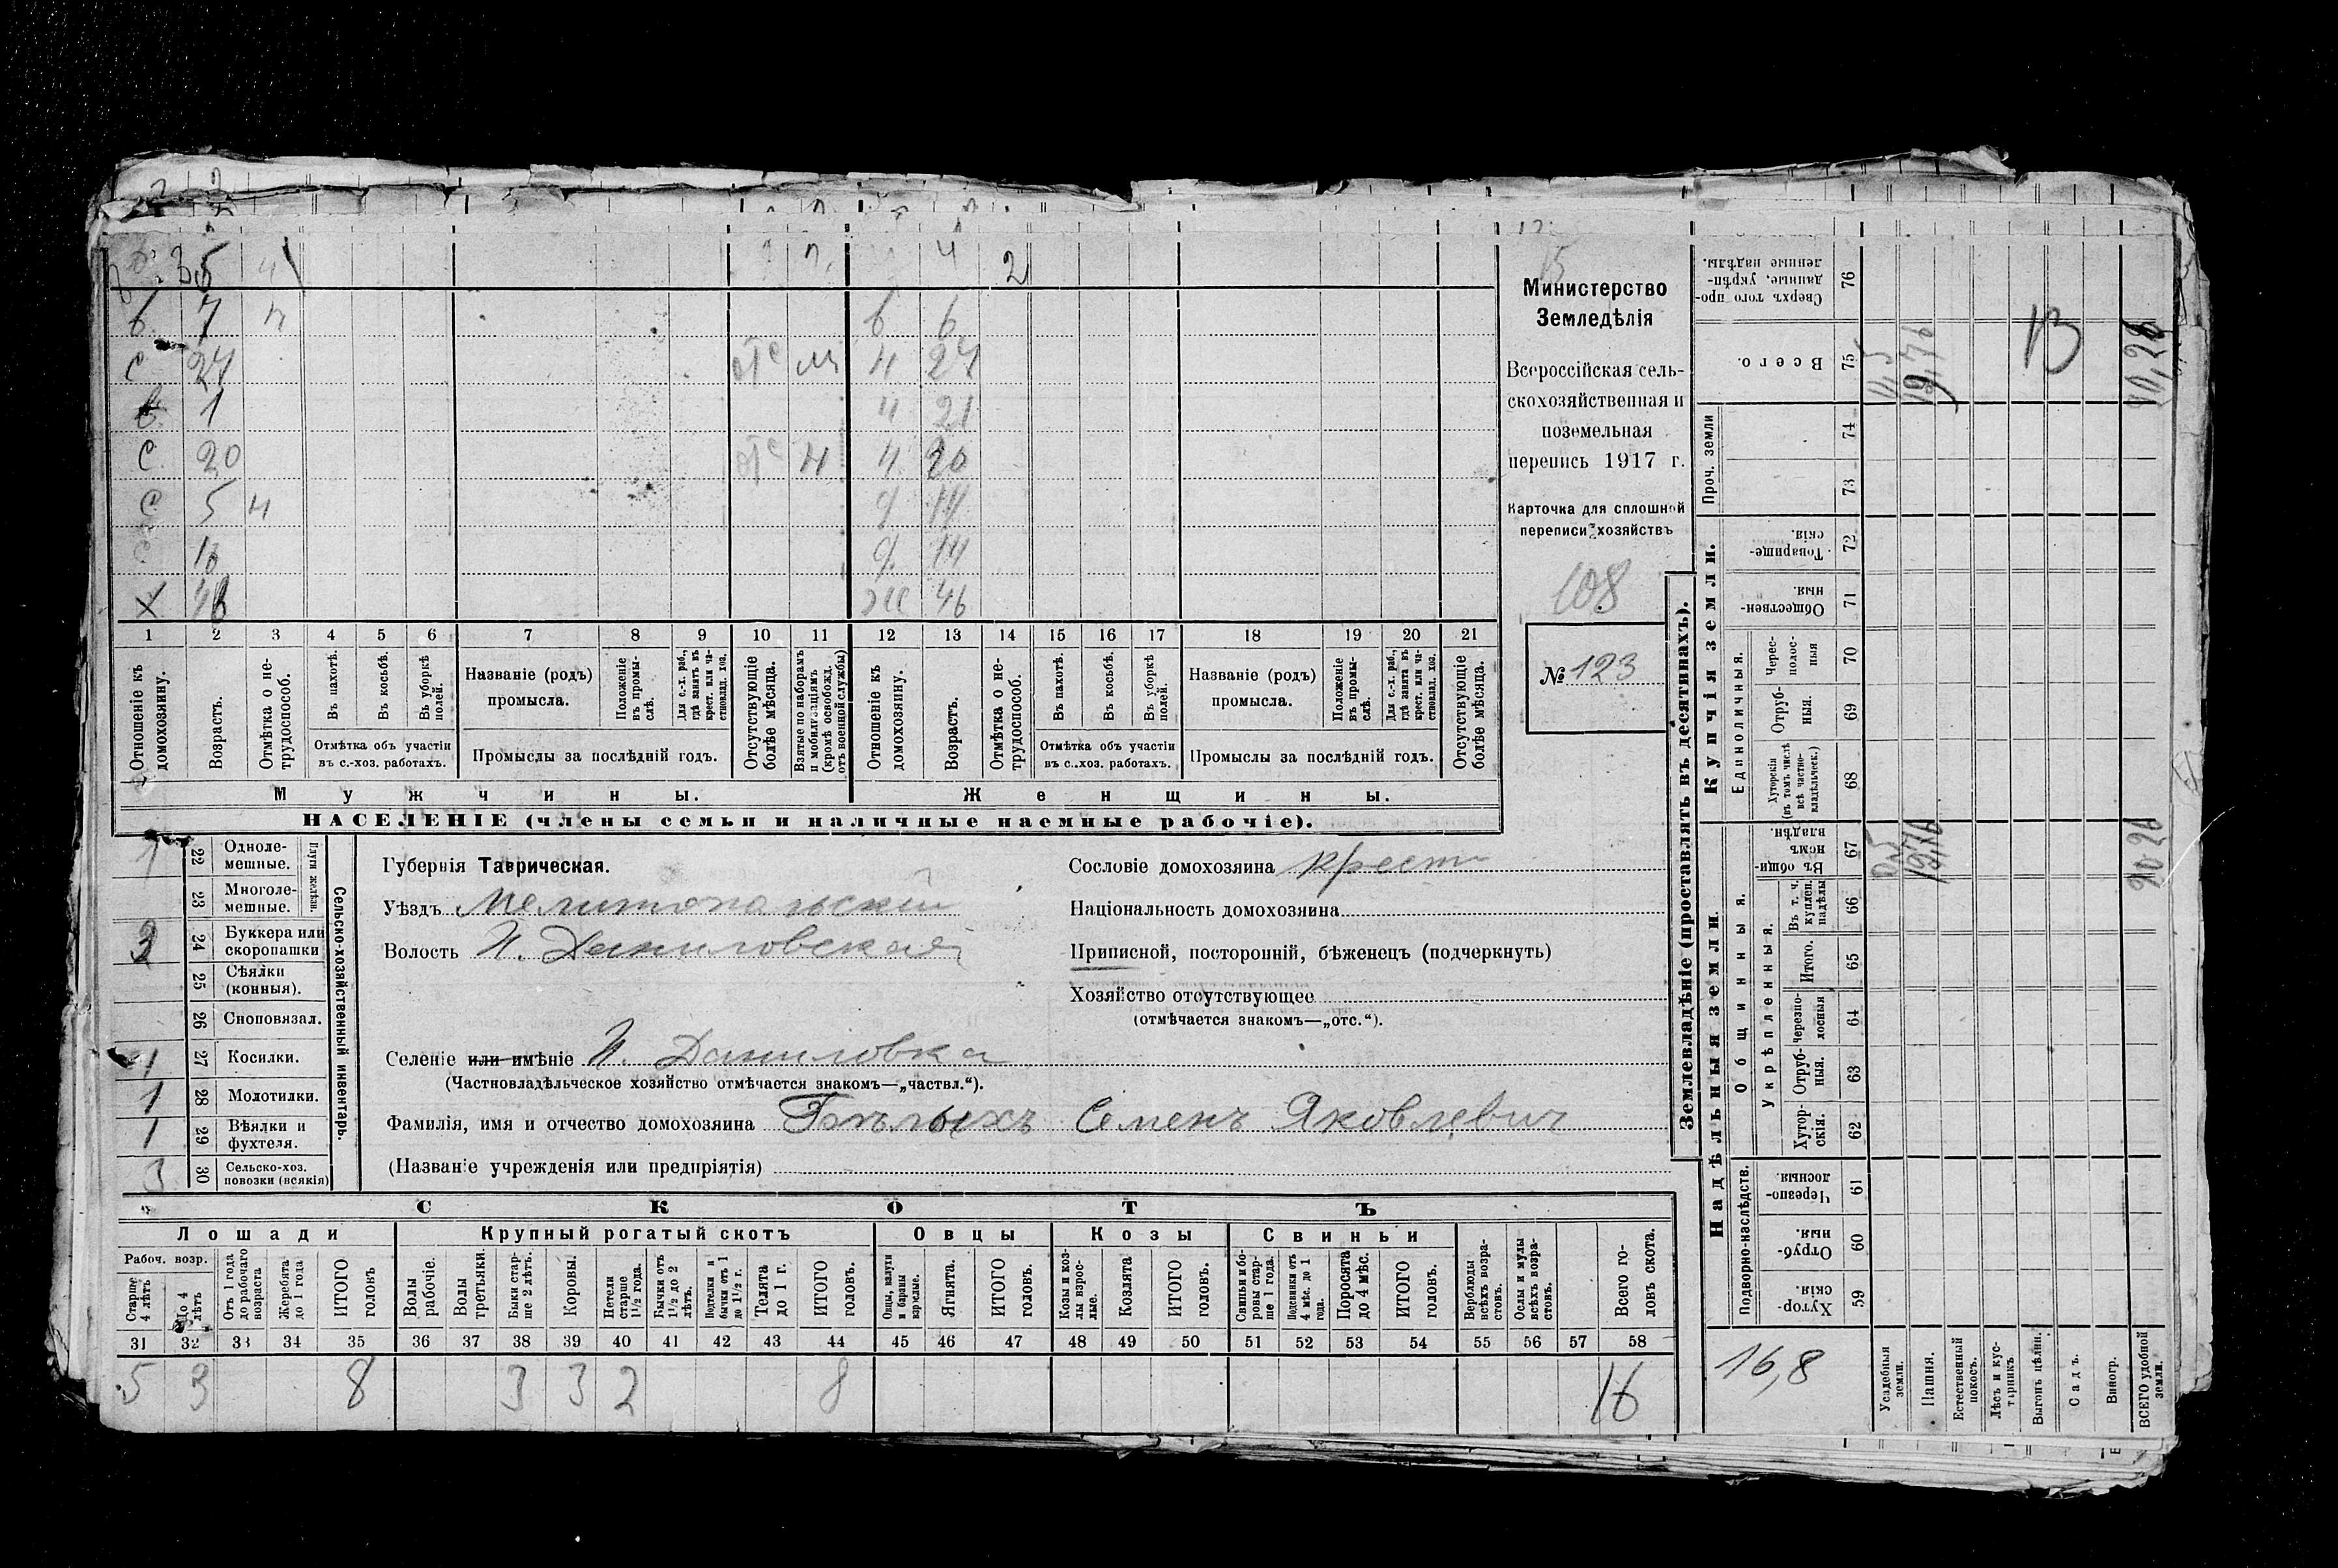 35 4 4 2
в. 7 н в 6
с 27 отс м н 27
в. 1 н 21
С. 20 отс н н 20
С 5 н д 14
с 13 д. 14
х 48 ж 46
1 2 3 4 5 6 7 8 9 10 11 12 13 14 15 16 17 18 19 20 21
Отношеніе къ домохозяину.
Возрастъ.
Отмѣтка о не-трудоспособ.
Въ пахотѣ.
Въ косьбѣ.
Въ уборкѣ полей.
Отмѣтка объ участіи въ с.-хоз. работахъ.
Названіе (родъ) промысла.
Положеніе въ промы-слѣ.
Для с.-х. раб., гдѣ занятъ въ крест. или ча-стновлад. хоз.
Промыслы за послѣдній годъ.
Отсутствующіе болѣе мѣсяца.
Взятые по наборамъ и мобилизаціямъ (кромѣ освобожд. отъ военной службы)
Отношеніе къ домохозяину.
Возрастъ.
Отмѣтка о не-трудоспособ.
Въ пахотѣ.
Въ косьбѣ.
Въ уборкѣ полей.
Отмѣтка объ участіи въ с..хоз. работахъ.
Названіе (родъ) промысла.
Положеніе въ промы-слѣ.
Для с.-х. раб., гдѣ занята въ крест. или ча-стновлад. хоз.
Промыслы за послѣдній годъ.
Отсутствующіе болѣе мѣсяца.
Мужчины. Женщины.
НАСЕЛЕНІЕ (члены семьи и наличные наемные рабочіе).
Министерство
Земледѣлія
Всероссійская сель-
скохозяйственная и
поземельная
перепись 1917 г.
Карточка для сплошной
переписи хозяйствъ
108
№ 123
Сельско-хозяйственный инвентарь.
Плуги желѣзн.
1 22 Одноле-мешные.
23 Многоле-мешные.
3 24 Буккера или скоропашки
25 Сѣялки (конныя).
26 Сноповязал.
1 27 Косилки.
1 28 Молотилки.
1 29 Вѣялки и фухтеля.
3 30 Сельско-хоз. повозки (всякія)
Губернія Таврическая.
Уѣздъ Мелитопольскій
Волость Н. Даниловская
Селеніе или имѣніе Н. Даниловка
(Частновладѣльческое хозяйство отмѣчается знакомъ—„частвл.“).
Фамилія, имя и отчество домохозяина Бѣлыхъ Семенъ Яковлевич
(Названіе учрежденія или предпріятія)
Сословіе домохозяина крест
Національность домохозяина
Приписной, посторонній, бѣженецъ (подчеркнуть)
Хозяйство отсутствующее
(отмѣчается знакомъ—„отс.“).
СКОТЪ
Лошади Крупный рогатый скотъ Овцы Козы Свиньи
Рабоч. возр.
Старше 4 лѣтъ
До 4 лѣтъ
Отъ 1 года до рабочаго возраста
Жеребята до 1 года
ИТОГО головъ
Волы рабочіе.
Волы третьяки.
Быки стар-ше 2 лѣтъ.
Коровы.
Нетели старше 1½ года.
Бычки отъ 1½ до 2 лѣтъ.
Подтелки и бычки отъ 1 до 1½ г.
Телята до 1 г.
ИТОГО головъ.
Овцы, валухи и бараны взрослые.
Ягнята.
ИТОГО головъ.
Козы и коз-лы взрос-лые.
Козлята
ИТОГО головъ.
Свиньи и бо-ровы стар-ше 1 года.
Подсвинки отъ 4 мѣс. до 1 года.
Поросята до 4 мѣс.
ИТОГО головъ.
Верблюды всѣхъ возра-стовъ.
Ослы и мулы всѣхъ возра-стовъ.
Всего го-ловъ скота.
31 32 33 34 35 36 37 38 39 40 41 42 43 44 45 46 47 48 49 50 51 52 53 54 55 56 57 58
5 3 8 3 3 2 8 16
Землевладѣніе (проставлять въ десятинахъ).
Сверхъ того про-данные, укрѣп-ленные надѣлы. 76
Всего. 75 0,5 19,76 13 20,26
Проч. земли 74 73
Купчія земли.
Товарище-скія. 72
Обществен-ныя. 71
Единоличныя.
Черес-полос-ныя 70
Отруб-ныя. 69
Хуторскія (въ томъ числѣ всѣ частно-владѣльческ.) 68
Надѣльныя земли.
Общинныя.
Въ общин-номъ владѣн. 67 0,5 19,76 20,26
Укрѣпленныя.
Въ т. ч. куплен. надѣлы 66
Итого. 65
Черезпо-лосныя 64
Отруб-ныя. 63
Хутор-скія. 62
Подворно-наслѣдств.
Черезпо-лосныя. 61
Отруб-ныя. 60
Хутор-скія. 59
16,8
Усадебныя земли.
Пашня.
Естественный покосъ.
Лѣсъ и кус-тарникъ
Выгонъ цѣлин.
Садъ.
Виногр.
ВСЕГО удобной земли.